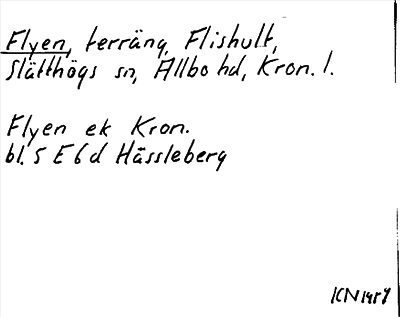 Flyen, terräng, Flishult,
Slätthögs sn, Allbo hd, Kron. l.
Flyen ek Kron.
bl. 5 E 6 d Hässleberg